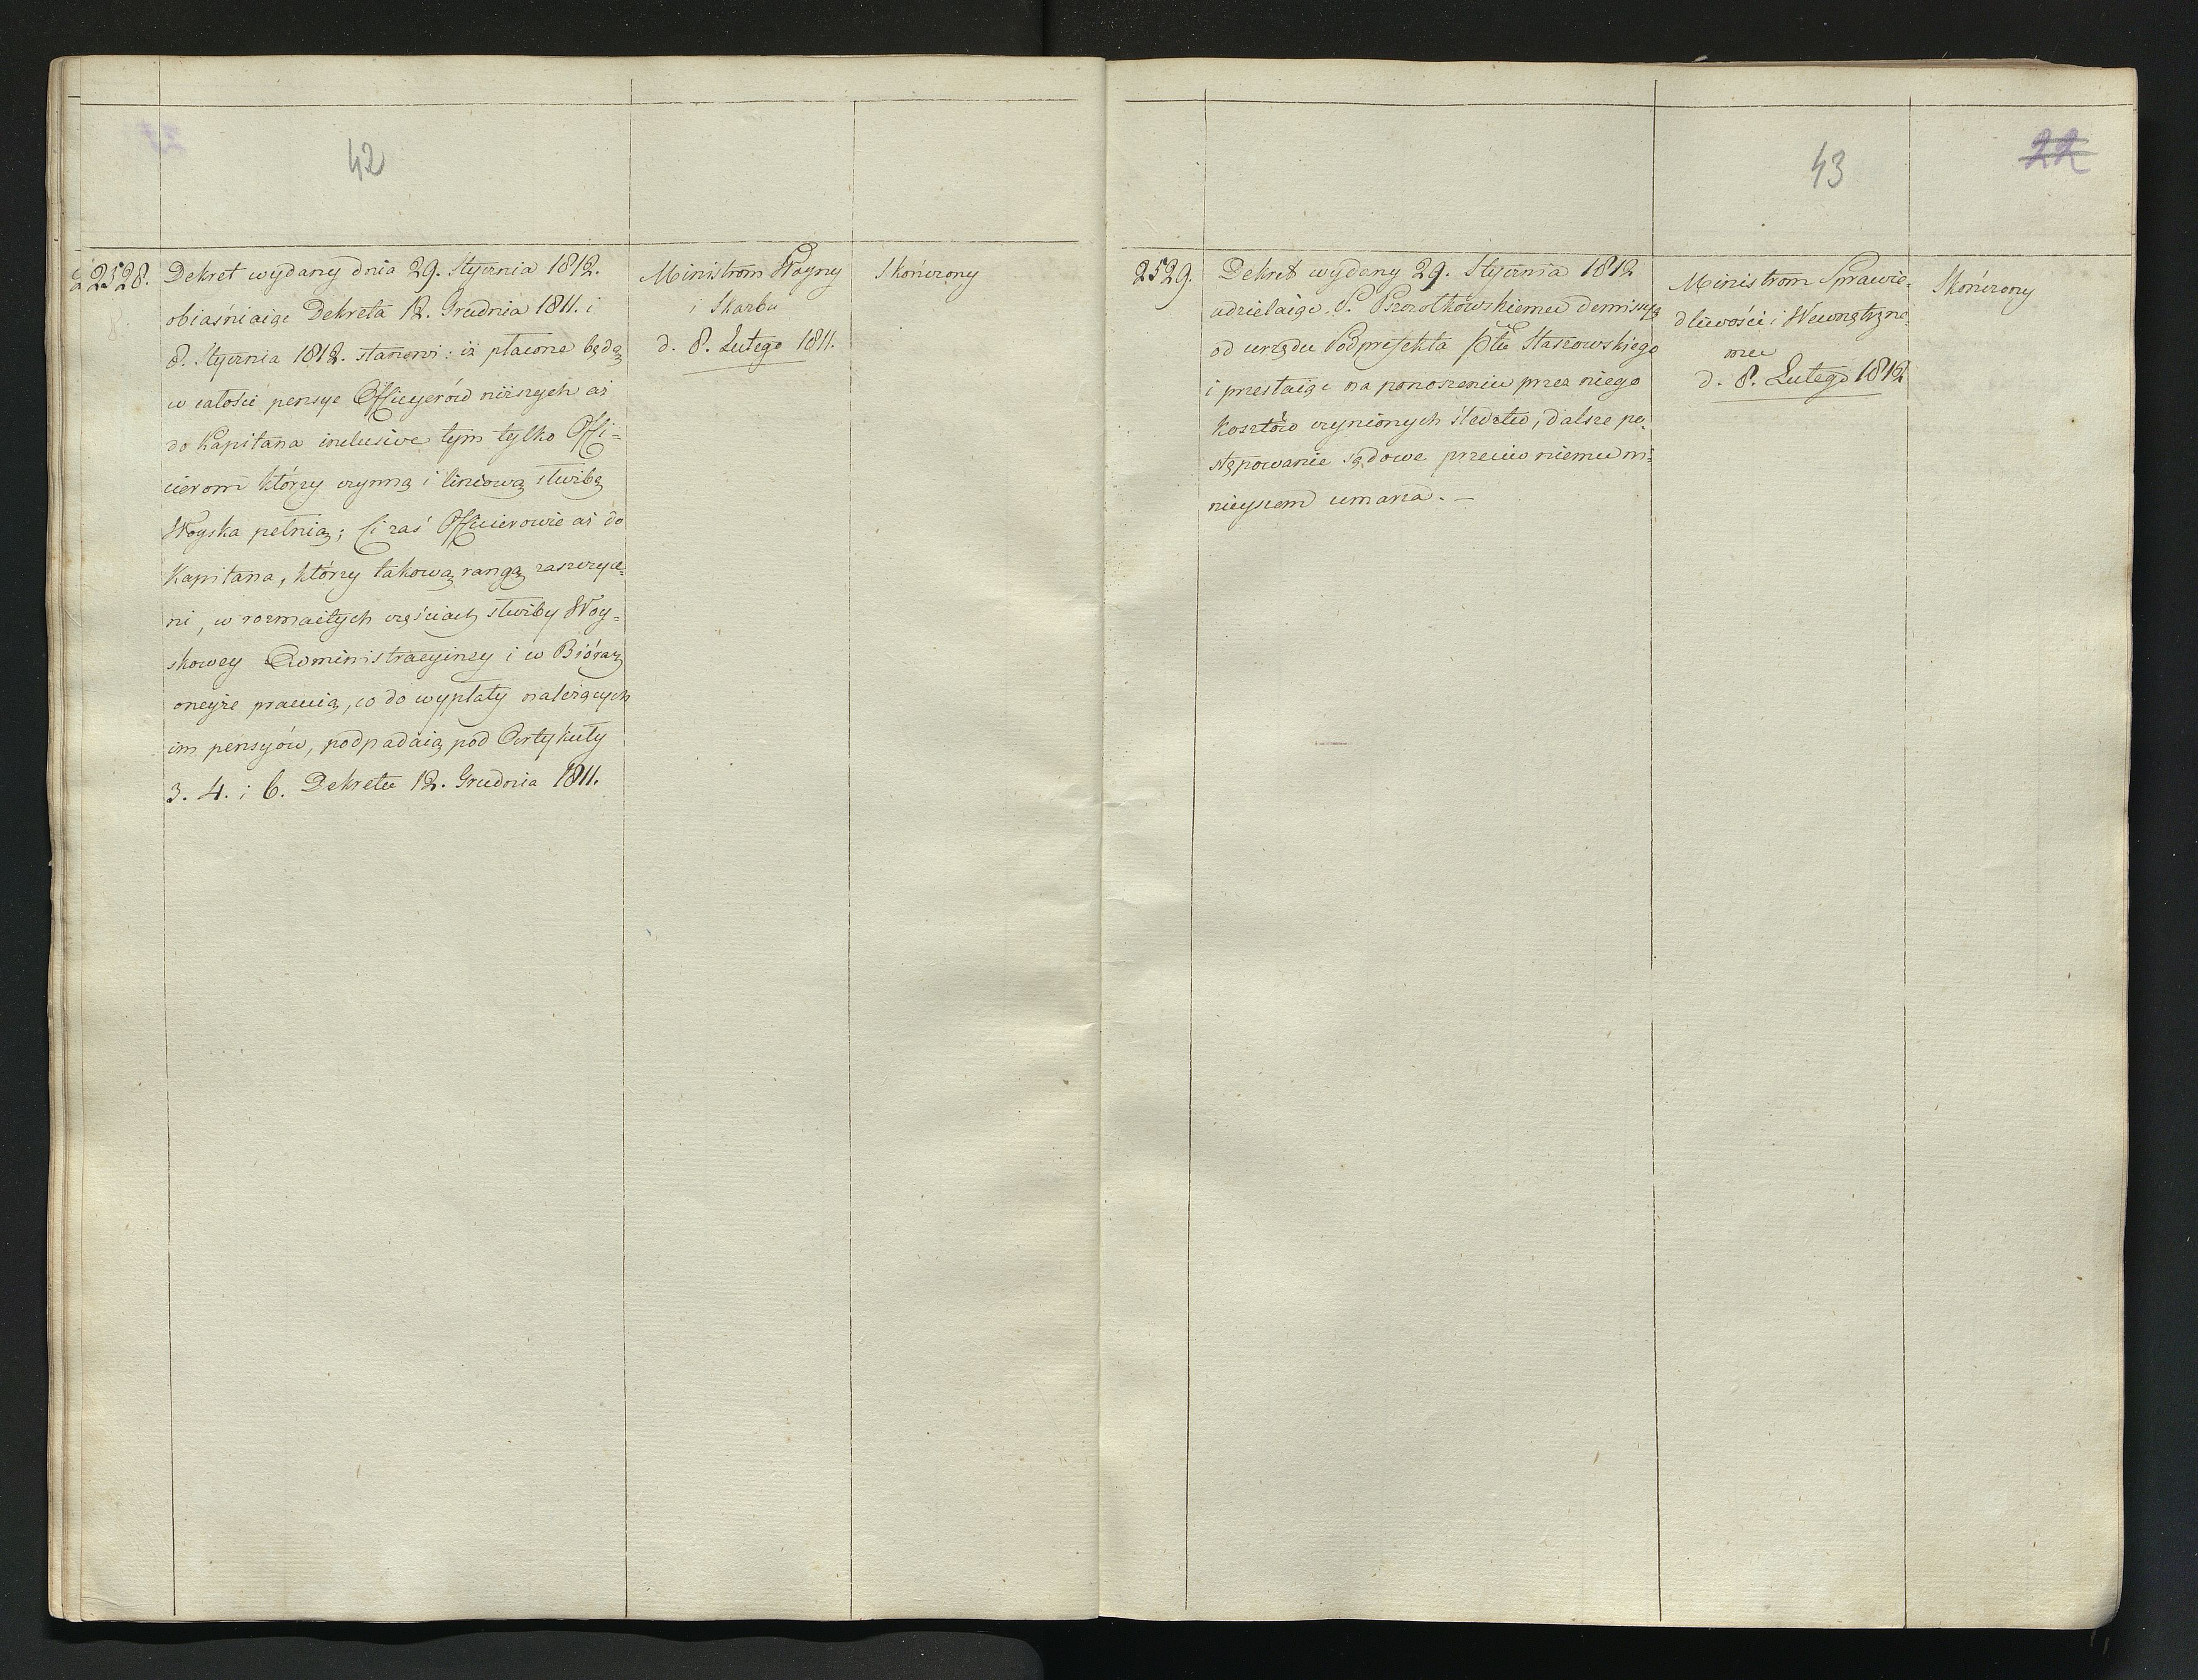 42
2528.
Dekret wydany dnia 29. Stycznia 1812.
obiaśniaiąc Dekreta 12. Grudnia 1811. i
8. Stycznia 1812. stanowi: iż płacone będą
w całości pensye Officyerów niższych aż
do Kapitana inclusive tym tylko Offi=
cierom którzy czynną i liniową służbę
Woyska pełnią; Ci zaś Officierowie aż do
Kapitana, którzy takową rangą zaszczyce=
ni, w rozmaitych częściach służby Woy=
skowey Administracyiney i w Biórach
oneyże pracuią, co do wypłaty należących
im pensyów, podpadaią pod Artykuły
3. 4. i 6. Dekretu 12. Grudnia 1811.
Ministrom Woyny
i Skarbu
d. 8. Lutego 1811.
Skończony
43
22
2529.
Dekret wydany 29. Stycznia 1812
udzielaiąc P. Pszczółkowskiemu demissyą
od urzędu Podprefekta Ptu Staszowskiego
i przestaiąc na ponoszeniu przez niego
kosztów czynionych śledztw, dalsze po=
stępowanie sądowe przeciw niemu ni=
nieyszem umarza. –
Ministrom Sprawie=
dliwości i Wewnętrzne=
mu
d. 8. Lutego 1812
Skończony